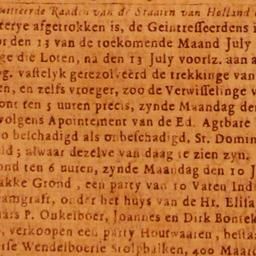 utteerde Raaden van de Staaten van Holland
terye afgetrokken is, de Geintresseerdens i
or den 13 van de toekomende Maand July
ge die Loten, na den 13 July voorlz. aan a
eg. vastelyk gerezolveerd de trekkinge van
en, en zelfs vroeger, zoo de Verwisselinge v
ont ten 5 uuren precis, zynde Maandag de
volgens Apointement van de Ed. Agtbare
o beschadigd als onbeschadigd, St. Domin
ld; alwaar dezelve van daag te zien zyn.
ond ten 6 uuren, zynde Maandag den 10 J
akke Grond, een party van 10 Vaten Ind
eramgraft, onder het huys van de Hr. Elisa
aars P. Onkelboer, Joannes en Dirk Bontek
verkoopen een party Houtwaaren, bestaa
rse Wendelboerse Stolpbalken, 400 Maar